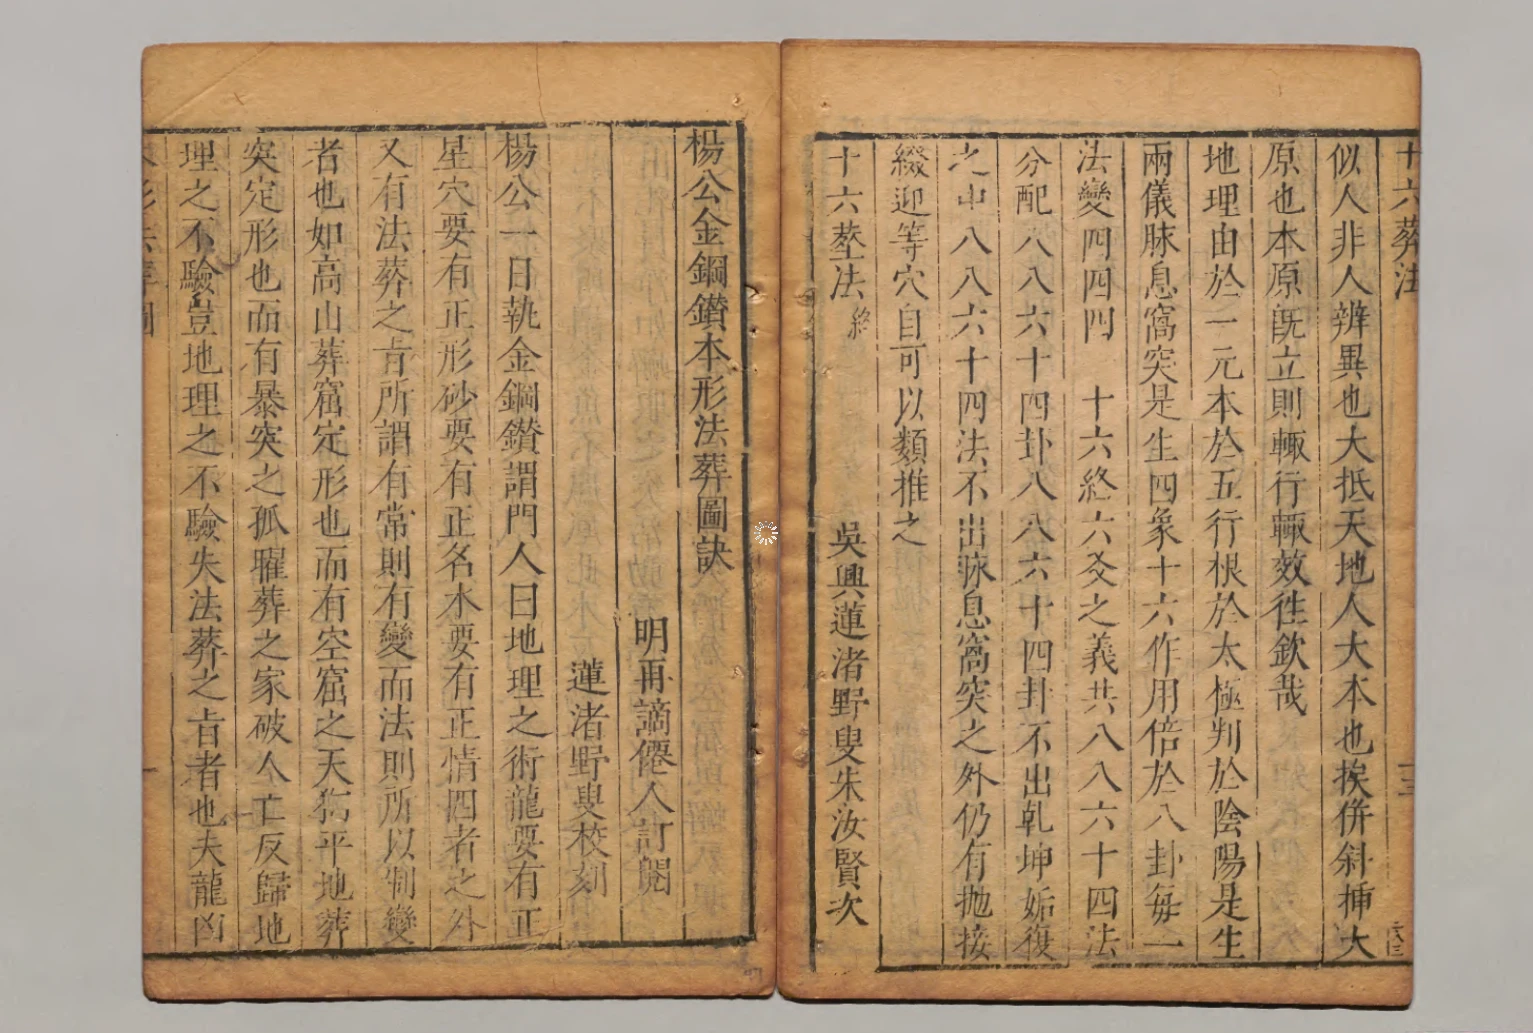 十六葬法
似人非人辨異也大抵天地人大本也挨併斜揷大
原也本原旣立則輙行輙效徃欽哉
地理由於一元本於五行根於太極判於陰陽是生
兩儀脉息窩突是生四象十六作用倍於八卦每一
法變四四四　十六終六爻之義共八八六十四法
分配八八六十四卦八八六十四卦不出乹坤姤復
之中八八六十四法不出脉息窩突之外仍有抛接
綴迎等穴自可以類推之
十六塟法終　吳興蓮渚野叟朱汝賢次
楊公金鋼鑚本形法葬圖訣
明再謫僊人訂閱
蓮渚野叟校刻
楊公一日執金鋼鑚謂門人曰地理之術龍要有正
星穴要有正形砂要有正名水要有正情四者之外
又有法葬之㫖所謂有常則有變而法則所以制變
者也如高山葬窟定形也而有空窟之天㺃平地葬
突定形也而有暴突之孤曜葬之家破人亡反歸地
理之不驗豈地理之不驗失法葬之㫖者也夫龍凶